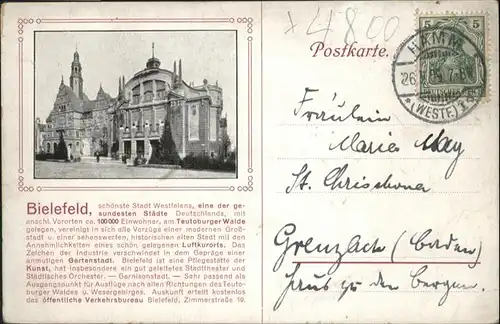 x 4800
Postkarte.
5 5
HAMM
(WESTF.)
Fräulein
Maries May
St. Chrischona
Grenzach (Baden)
Haus zu den Bergen.
Bielefeld, schönste Stadt Westfalens, eine der ge-
sundesten Städte Deutschlands, mit
anschl. Vororten ca. 100000 Einwohner, am Teutoburger Walde
gelegen, vereinigt in sich alle Vorzüge einer modernen Groß-
stadt u. einer sehenswerten, historischen alten Stadt mit den
Annehmlichkeiten eines schön gelegenen Luftkurorts. Das
Zeichen der Industrie verschwindet in dem Gepräge einer
anmutigen Gartenstadt. Bielefeld ist eine Pflegestätte der
Kunst, hat insbesondere ein gut geleitetes Stadttheater und
Städtisches Orchester. — Garnisonstadt. — Sehr passend als
Ausgangspunkt für Ausflüge nach allen Richtungen des Teuto-
burger Waldes u. Wesergebirges. Auskunft erteilt kostenlos
das öffentliche Verkehrsbureau Bielefeld, Zimmerstraße 19.